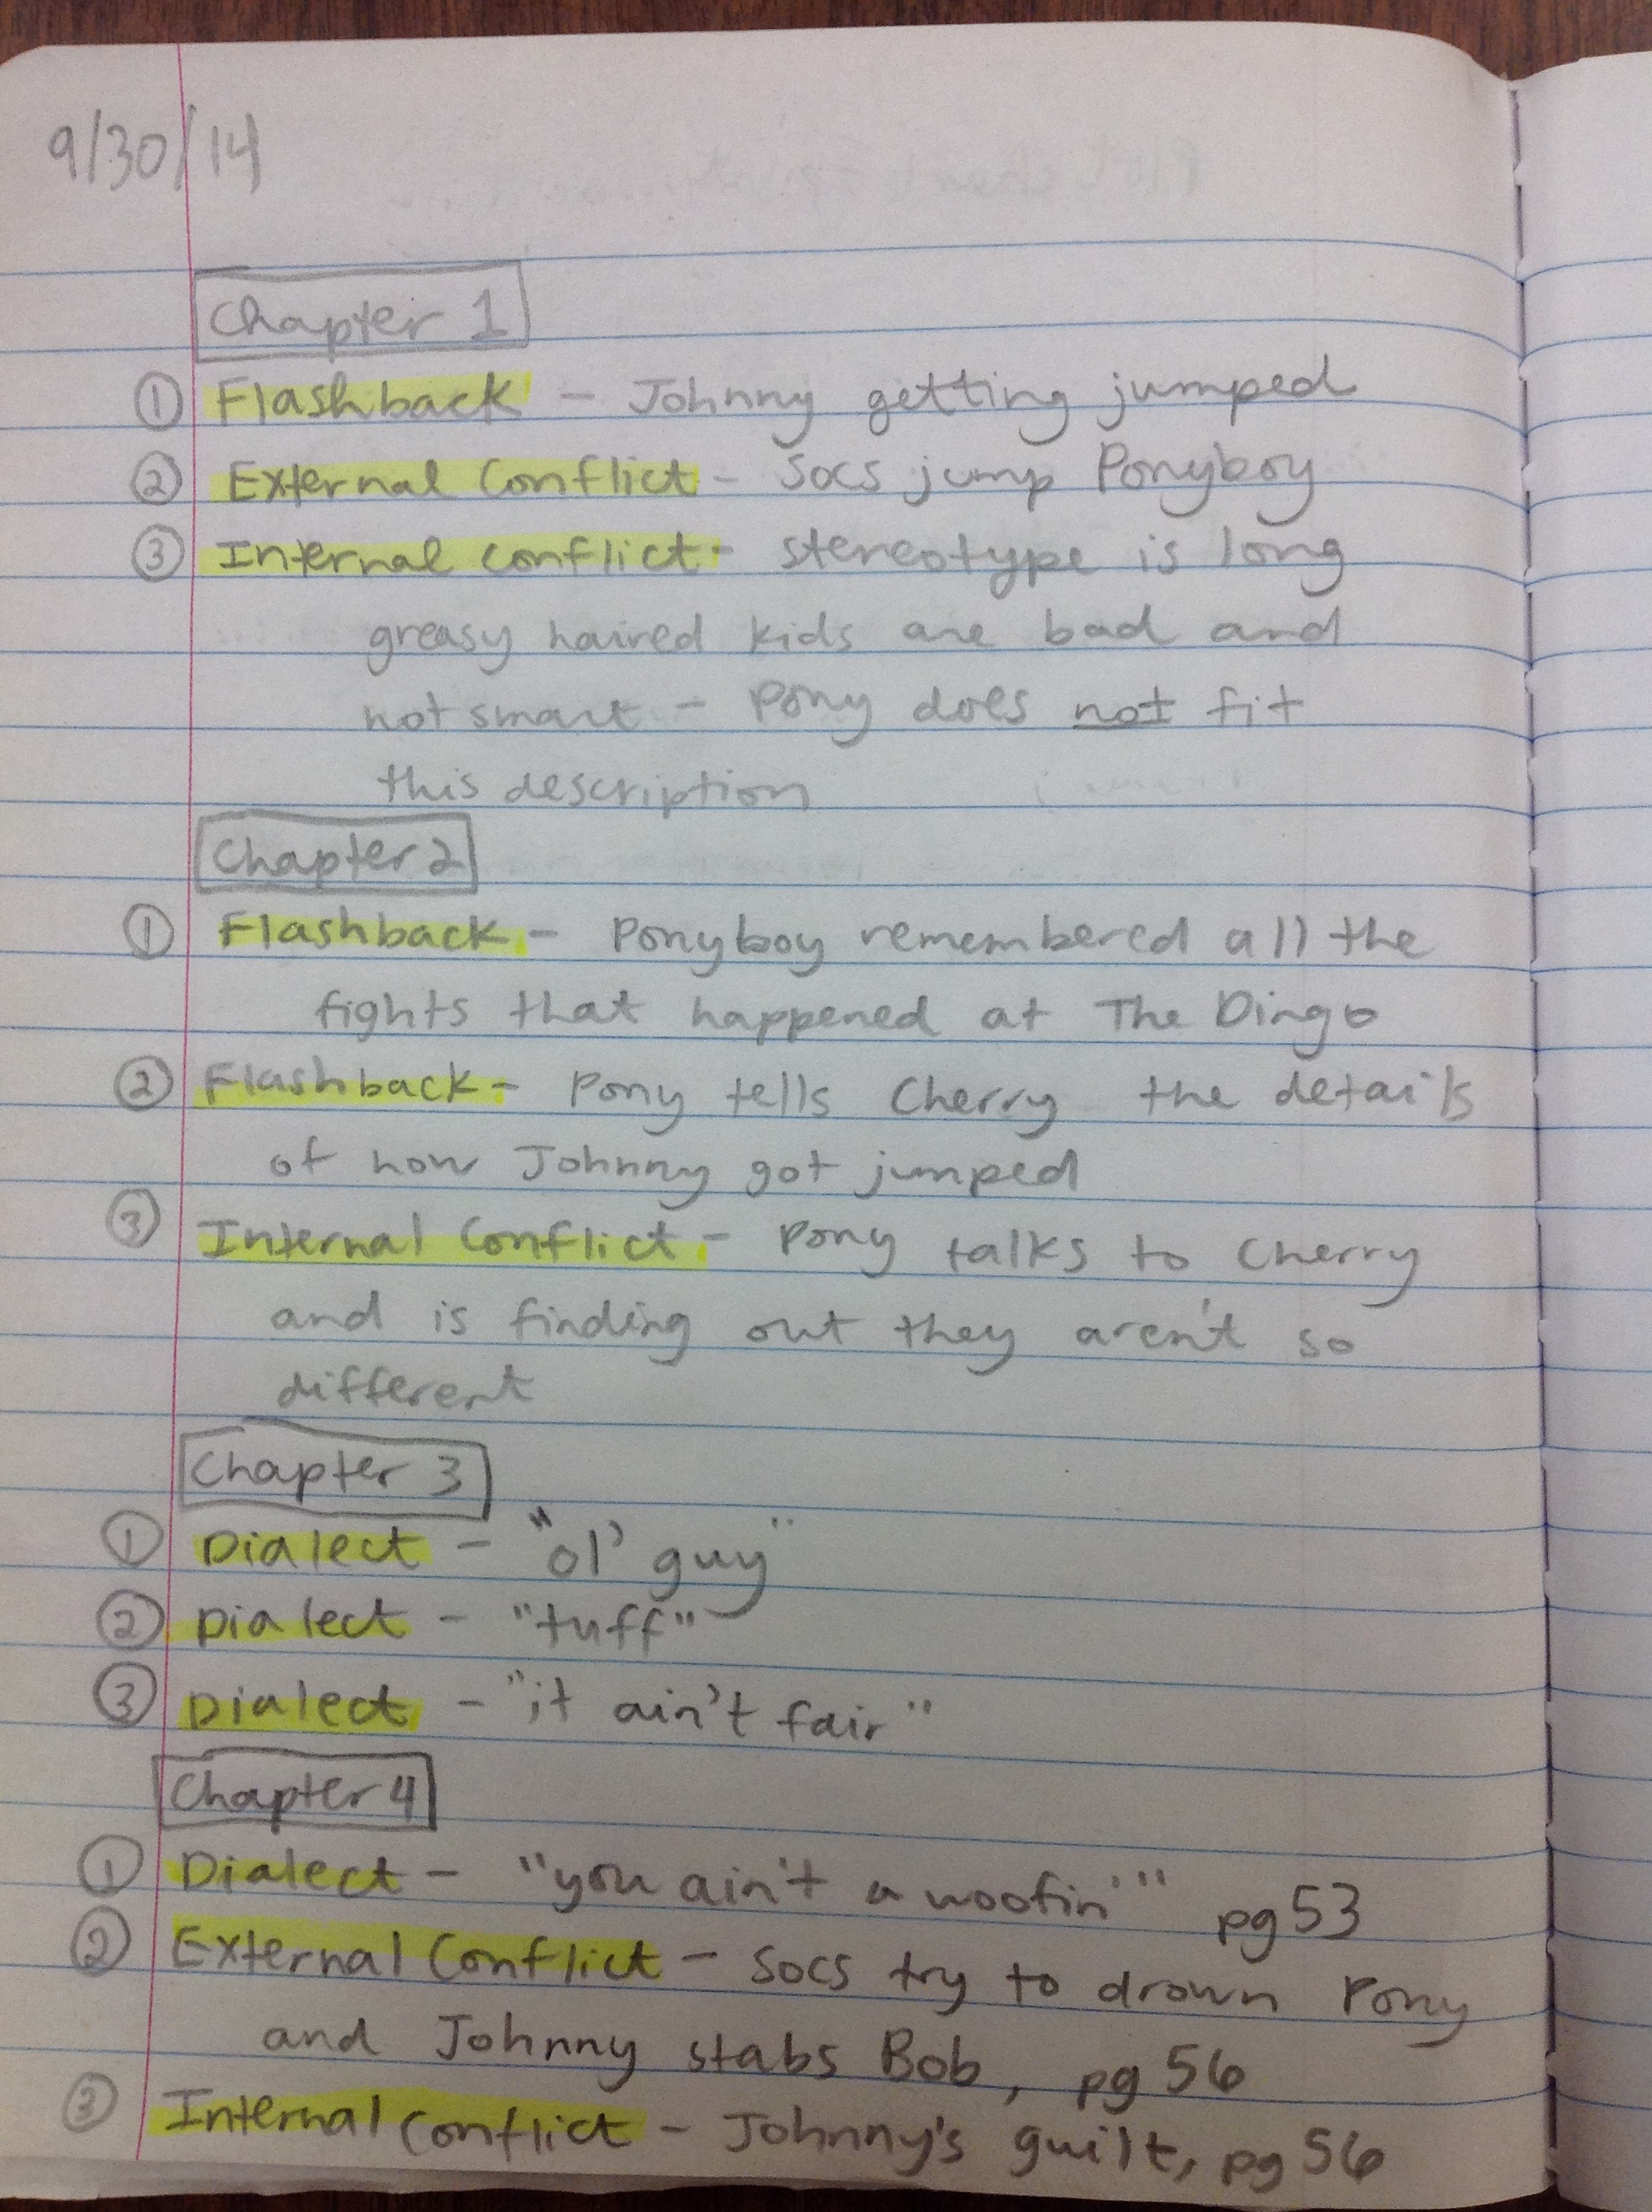 9/30/14
Chapter 1
① Flashback – Johnny getting jumped
② External Conflict – Socs jump Ponyboy
③ Internal conflict – stereotype is long
greasy haired kids are bad and
not smart – Pony does not fit
this description
Chapter 2
① Flashback – Ponyboy remembered all the
fights that happened at The Dingo
② Flashback – Pony tells Cherry the details
of how Johnny got jumped
③ Internal Conflict – Pony talks to Cherry
and is finding out they aren't so
different
Chapter 3
① Dialect – "ol' guy"
② Dialect – "tuff"
③ Dialect – "it ain't fair"
Chapter 4
① Dialect – "you ain't a woofin'" pg 53
② External Conflict – Socs try to drown Pony
and Johnny stabs Bob, pg 56
③ Internal Conflict – Johnny's guilt, pg 56